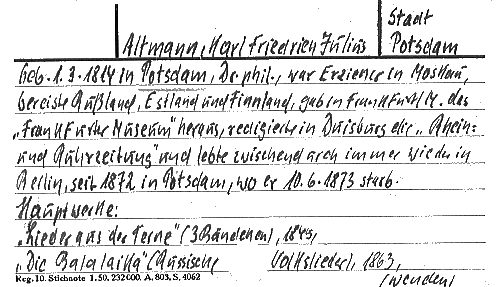 Altmann, Karl Friedrich Julius
Stadt
Potsdam
Geb. 1.3.1814 in Potsdam, Dr. phil., war Erzieher in Moskau,
bereiste Rußland, Estland und Finnland, gab in Frankfurt/M. das
„Frankfurter Museum" heraus, redigierte in Duisburg die „Rhein-
und Ruhrzeitung" und lebte zwischendurch immer wieder in
Berlin, seit 1872 in Potsdam, wo er 10.6.1873 starb.
Hauptwerke:
„Lieder aus der Ferne" (3 Bändchen), 1845,
„Die Balalaika" (Russische Volkslieder), 1863,
Reg. 10. Stichnote 1. 50. 232000. A. 803, S. 4062
(wenden)